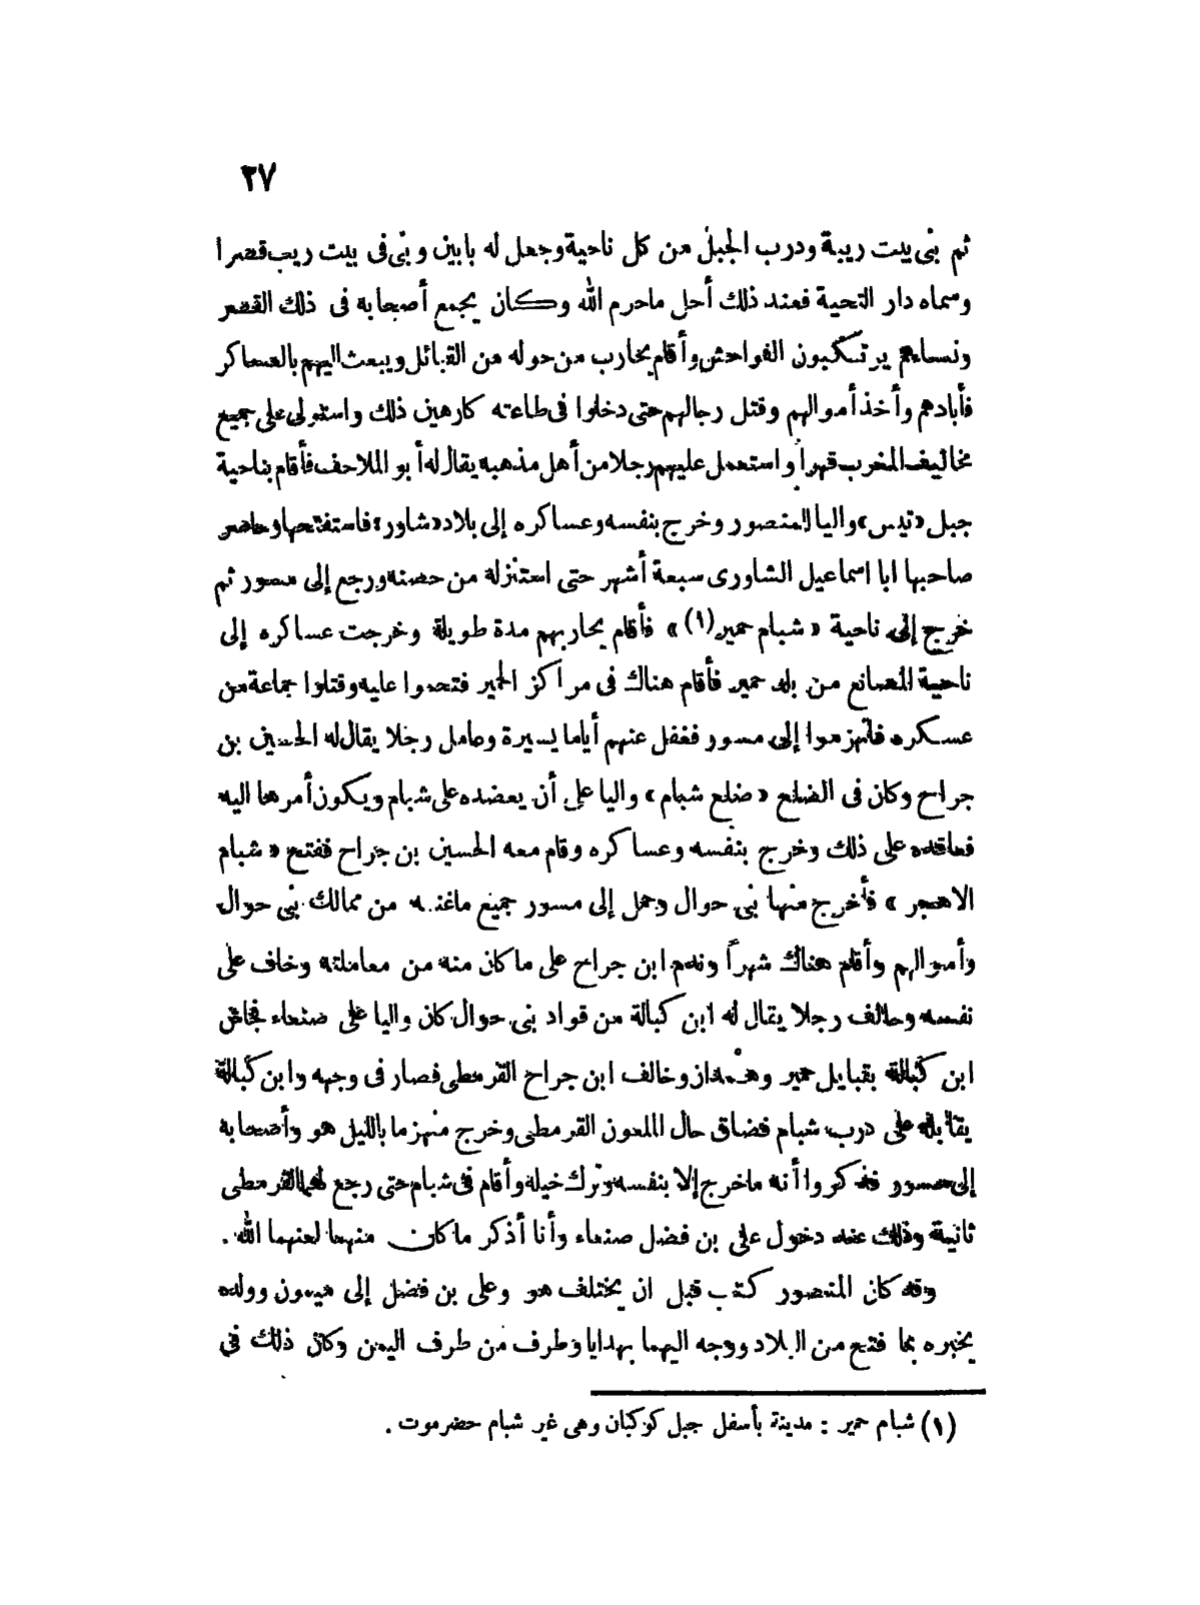 ٢٧
ثم بنى بيت ريبة ودرب الجبل من كل ناحية وجعل له بابين وبنى فى بيت ريب قصرا
وسماه دار التحية فعند ذلك أحل ماحرم الله وكان يجمع أصحابه فى ذلك القصر
ونساءهم يرتكبون الفواحش وأقام يحارب من حوله من القبائل ويبعث اليهم بالعساكر
فأبادهم وأخذ أموالهم وقتل رجالهم حتى دخلوا فى طاعته كارهين ذلك واستولى على جميع
مخاليف المغرب قهراً واستعمل عليهم رجلا من أهل مذهبه يقال له أبو الملاحف فأقام بناحية
جبل «تيس» واليا للمنصور وخرج بنفسه وعساكره إلى بلاد «شاور» فاستفتحها وحاصر
صاحبها ابا اسماعيل الشاورى سبعة أشهر حتى استنزله من حصنه ورجع إلى مسور ثم
خرج إلى ناحية « شبام حمير(١) » فأقام يحاربهم مدة طويلة وخرجت عساكره إلى
ناحية المصانع من بلد حمير فأقام هناك فى مراكز الحمير فتحدوا عليه وقتلوا جماعة من
عسكره فانهزموا إلى مسور فغفل عنهم أياما يسيرة وعامل رجلا يقال له الحسين بن
جراح وكان فى الضلع « ضلع شبام » واليا على أن يعضده على شبام ويكون أمرها اليه
فعاقده على ذلك وخرج بنفسه وعساكره وقام معه الحسين بن جراح ففتح « شبام
الاهجر » فأخرج منها بنى حوال وحمل إلى مسور جميع ماغنمه من ممالك بنى حوال
وأموالهم وأقام هناك شهراً وندم ابن جراح على ماكان منه من معاملته وخاف على
نفسه وحالف رجلا يقال له ابن كبالة من قواد بنى حوال كان واليا على صنعاء فجاش
ابن كبالة بقبايل حمير وهمدان وخالف ابن جراح القرمطى فصار فى وجهه وابن كبالة
يقابله على درب شبام فضاق حال الملعون القرمطى وخرج منهزما بالليل هو وأصحابه
إلى مسور فذكروا أنه ماخرج إلا بنفسه وترك خيله وأقام فى شبام حتى رجع لهما القرمطى
ثانية وذلك عند دخول على بن فضل صنعاء وأنا أذكر ماكان منهما لعنهما الله .
وقد كان المنصور كتب قبل ان يختلف هو وعلى بن فضل إلى ميمون وولده
يخبره بما فتح من البلاد ووجه اليهما بهدايا وطرف من طرف اليمن وكان ذلك فى
(١) شبام حمير : مدينة بأسفل جبل كوكبان وهى غير شبام حضرموت .